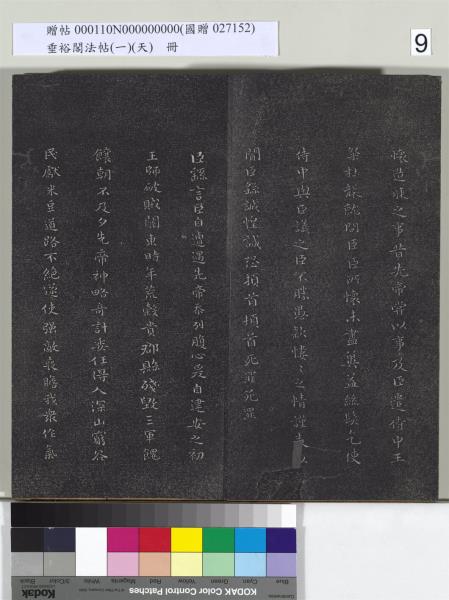 贈帖 000110N000000000(國贈 027152)
垂裕閣法帖(一)(天) 冊
9
懷造膝之事昔先帝嘗以事及臣遣侍中王
粲杜襲就問臣臣所懷未盡冀益絲髮乞使
侍中與臣議之臣不勝愚款慺慺之情謹表以
聞臣繇誠惶誠恐頓首頓首死罪死罪
臣繇言臣自遭遇先帝忝列腹心爰自建安之初
王師破賊關東時年荒穀貴郡縣殘毀三軍餽
饟朝不及夕先帝神略奇計委任得人深山窮谷
民獻米豆道路不絕遂使強敵喪膽我衆作氣
Blue Cyan Green Yellow Red Magenta White 3/Color Black
Kodak
KODAK Color Control Patches